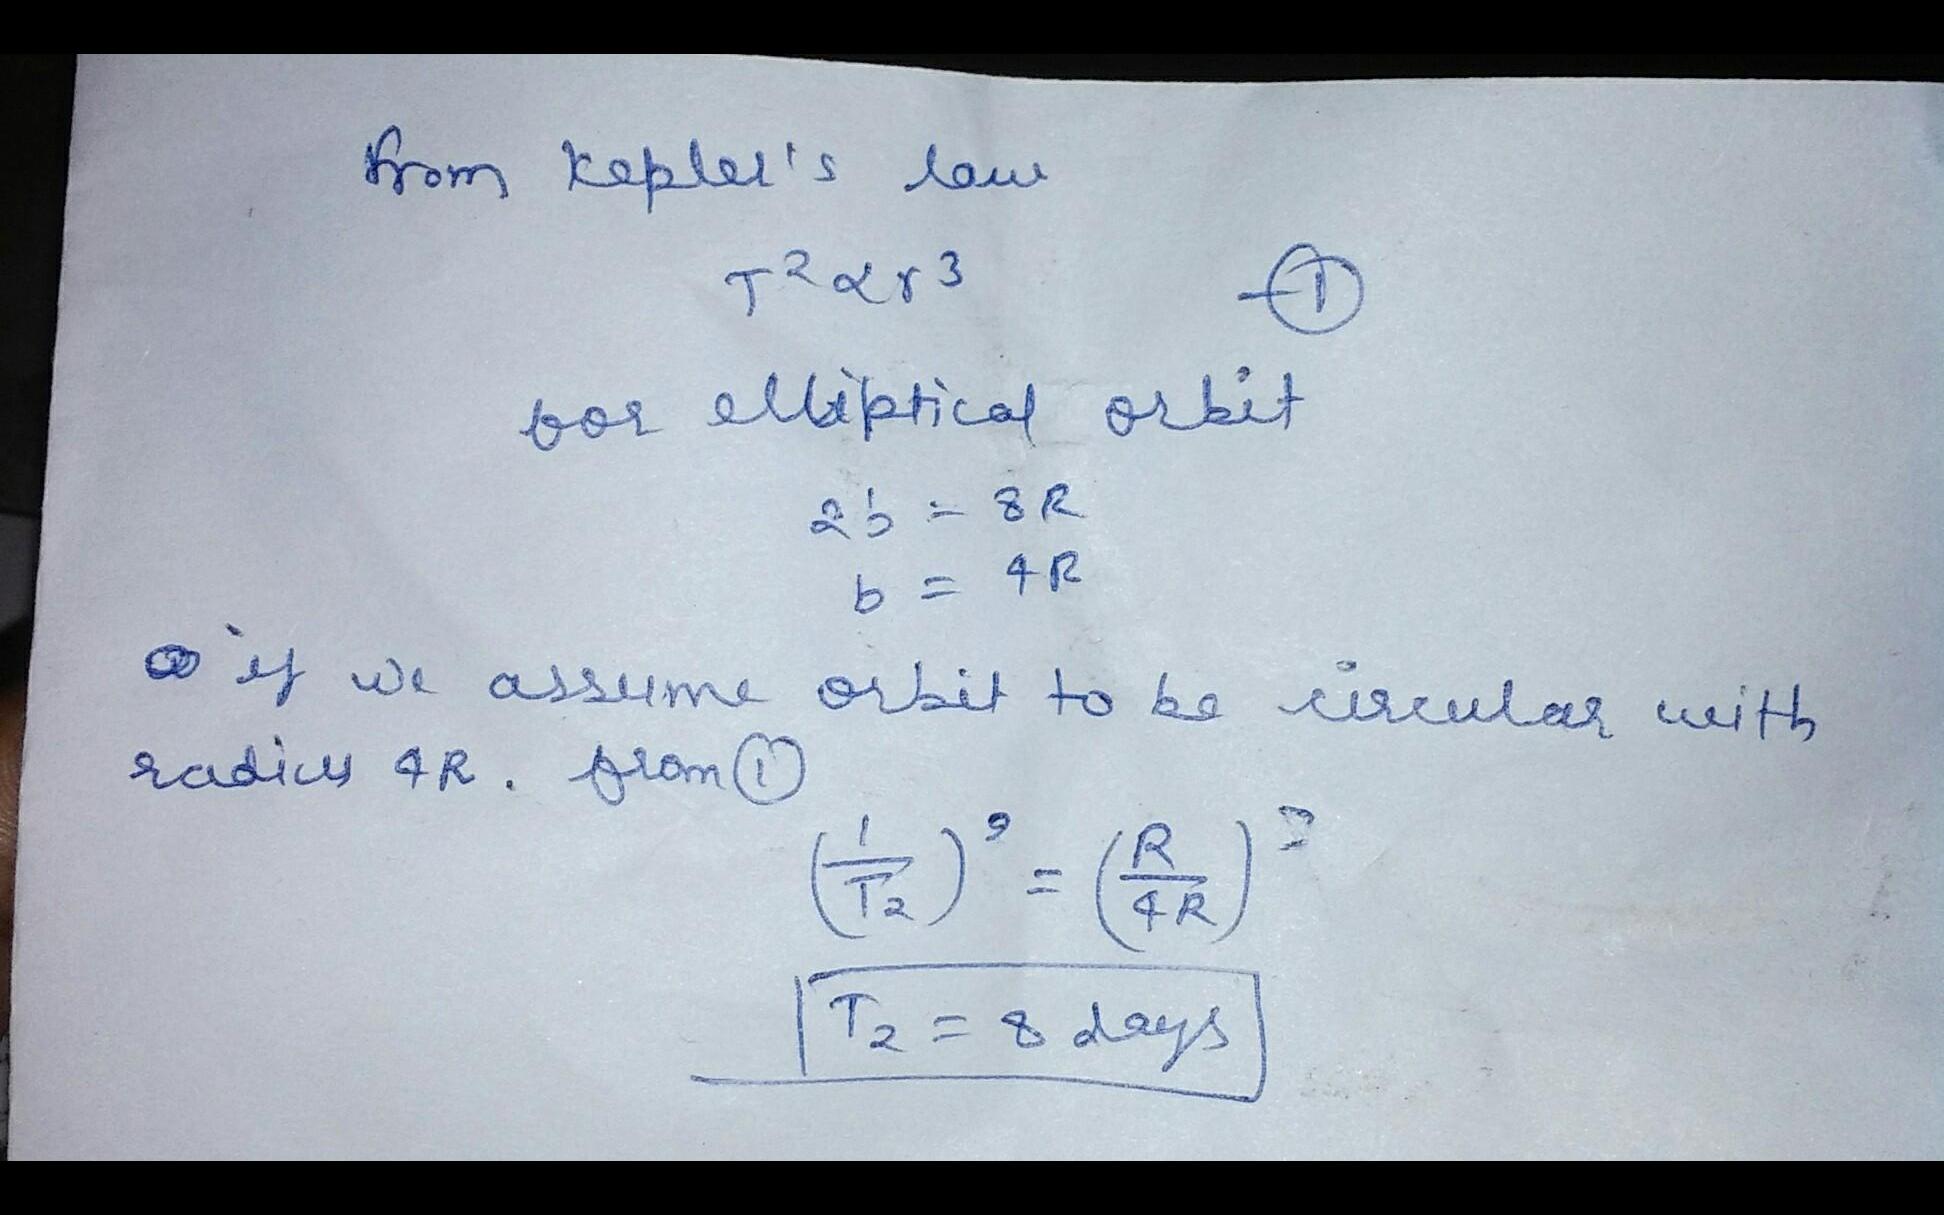 from Kepler's law
T² α r³ —①
for elliptical orbit
2b = 8R
b = 4R
if we assume orbit to be circular with
radius 4R. from ①
(1/T₂)² = (R/4R)³
T₂ = 8 days